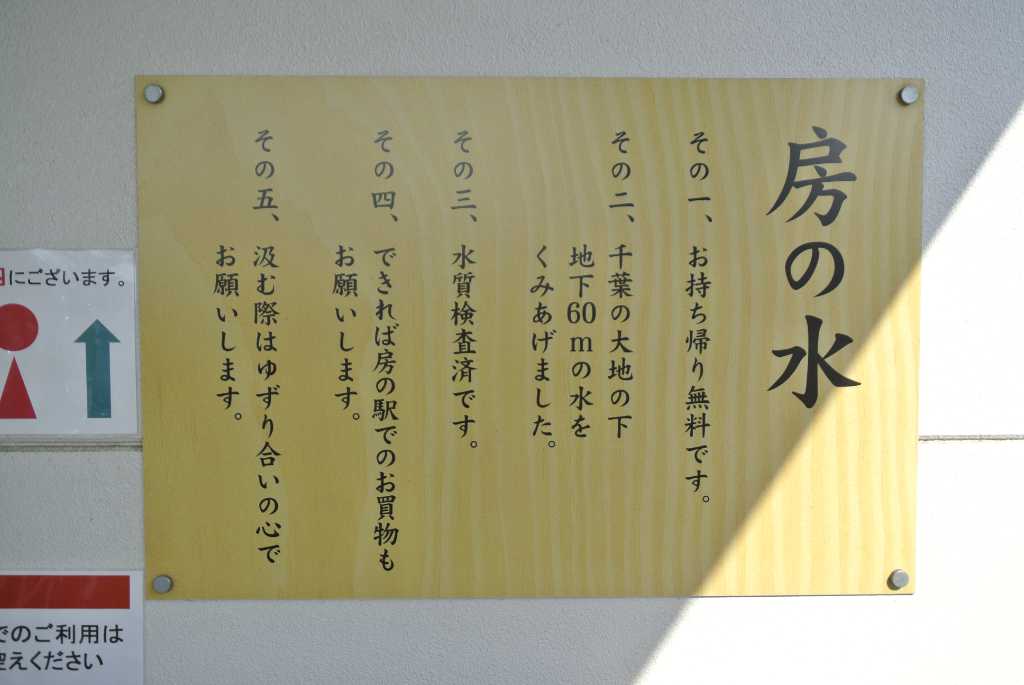 房の水
その一、お持ち帰り無料です。
その二、千葉の大地の下
地下60mの水を
くみあげました。
その三、水質検査済です。
その四、できれば房の駅でのお買物も
お願いします。
その五、汲む際はゆずり合いの心で
お願いします。
にございます。
でのご利用は
控えください